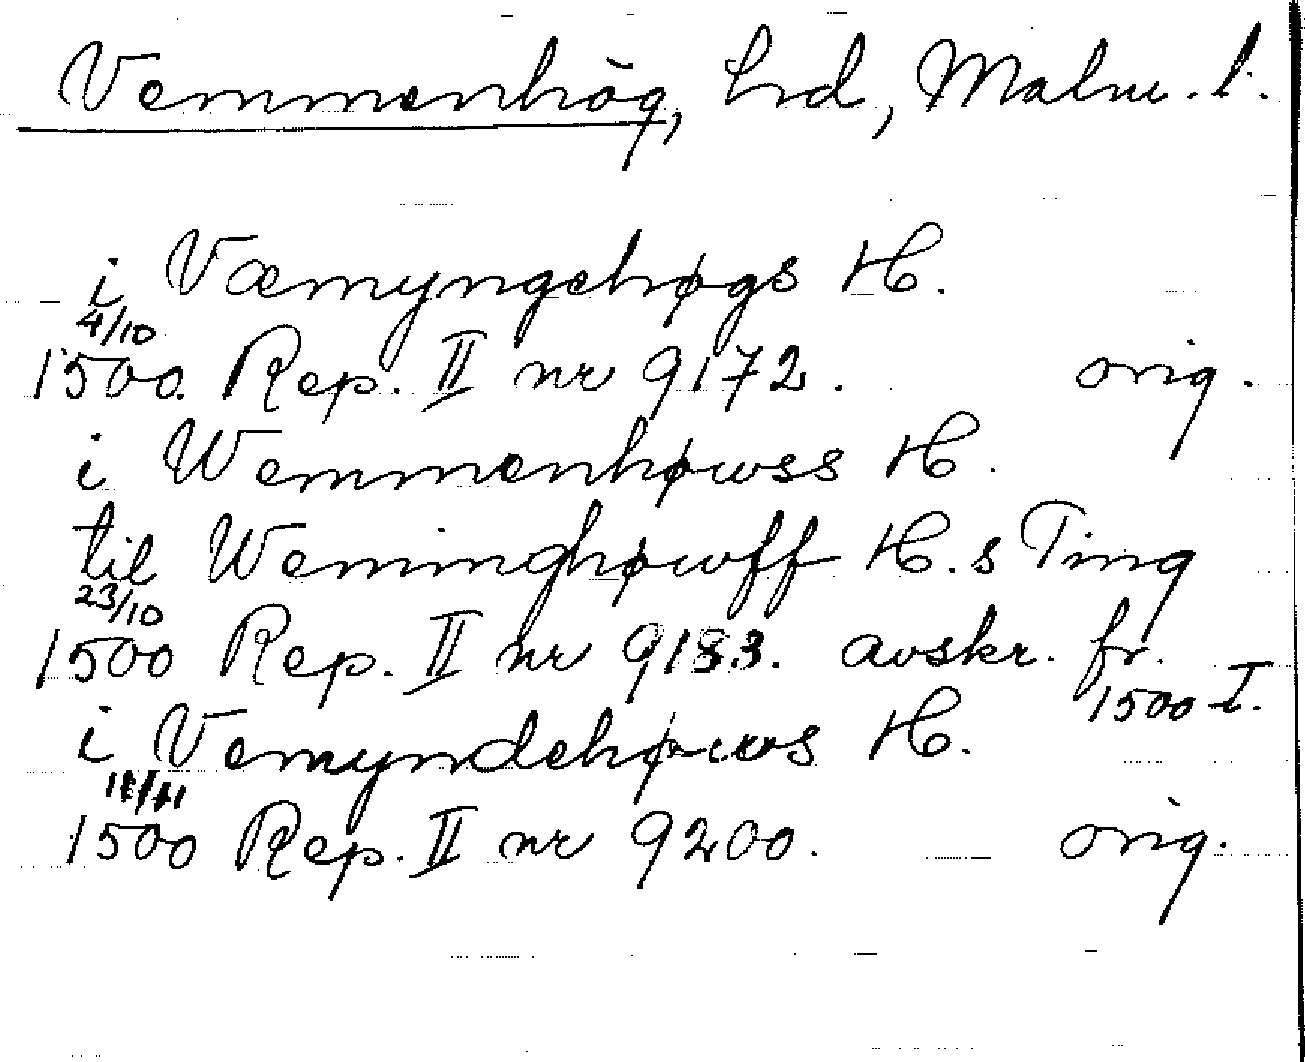 Vemmenhög, hd, Malm. l.
i Væmyngehøgs H.
4/10
1500. Rep. II nr 9172. orig.
i Wemmenhøwss H.
til Weminghøwff H.s Ting
23/10
1500 Rep. II nr 9183. avskr. fr.
1500-t.
i Vemyndehøws H.
11/11
1500 Rep. II nr 9200. orig.